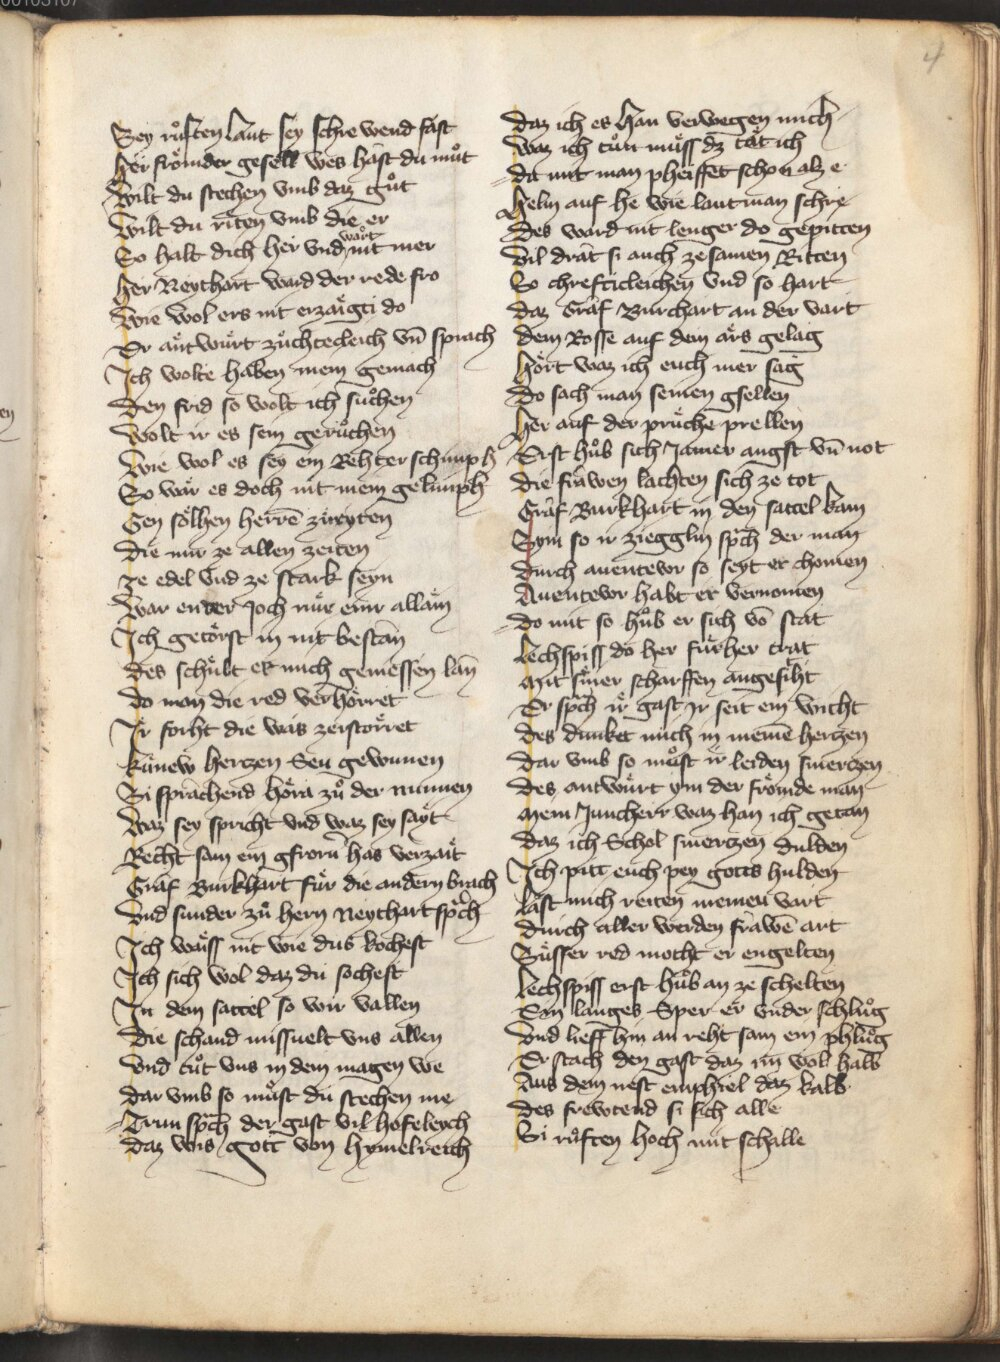 4
Sey ruͦften laut sey schre wend fast
Her froͤmder gesell wes hast du muͦt
Wilt du stechen vmb daz guͦt
Wilt du riten vmb die er
So halt dich her vnd wart nit mer
Her Neythart ward der rede fro
Wie wol ers nit erzaͤigti do
Er antwuͤrt zuͤchtecleich vn̄ sprach
Ich wolte haben mein gemach
Den frid so wolt ich suͦchen
Wolt ir es sein geruͦchen
Wie wol es sey ein Rehter schimph
So waͤr es doch nit mein gelimph
Gen soͤlhen herrē zu reyten
Die mir ze allen zeiten
Ze edel vnd ze stark seyn
War en der Joch nuͤr einr allain
Ich getoͤrst in nit bestan
Des schuͤlt er mich geniessen lan
Do man die red verhoͤrret
Ir forht die was zerstoͤrret
Kuͤnew hertzen Seu gewunnen
Si sprachend hoͤra zuͦ der nunnen
Waz sey spricht vnd waz sey sayt
Recht sam ein gfrorn has verzait
Graf Burkhart fuͤr die andern brach
Vnd sunder zuͦ hern Neythart spͣch
Ich waͤiss nit wie dus kochest
Ich sich wol daz du sochest
In dem sattel so wir vallen
Die schand missuelt vns allen
Vnd tuͦt vns in dem magen we
Dar vmb so muͦst du stechen me
Trun spͣch der gast vil hofeleych
Daz wis gott von hymelreich
Daz ich es han verwegen mich
Waz ich tuͦn muͦss dz taͤt ich
Da mit man pheiffet schon alz e
Helm auf he wie laut man schre
Des ward nit lenger do gepitten
Vil draͤt si auch zesamen Ritten
So chrefticleichen vnd so hart
Daz Graf Burchart an der vart
Dem Rosse auf dem aͤrs gelag
Hoͤrt waz ich euch mer sag
Do sach man seinen gsellen
Her auf der pruͤche prellen
Erst huͦb sich Jamer angst vn̄ not
Die frawen lachten sich ze tot
Graf Burkhart in den sattel kam
Sym so ir ziegglin spͣch der man
Durch auentewr so seyt er chomen
Auentewr habt er vernomen
Do mit so huͦb er sich vō stat
Lechspiss do her fuͤrher trat
Mit siner scharffen angesiht
Er spͣch ir gast Ir seit ein wicht
Des dunket mich in meinē hertzen
Dar vmb so muͦst ir leiden smertzen
Des antwuͤrt ym der froͤmde man
Mein Juncherr waz han ich getan
Daz ich Schol smertzen dulden
Ich pitt euch pey gotts hulden
Last mich reiten meinen vart
Durch aller werden frawē art
Suͤsser red mocht er engelten
Lechspiss erst huͦb an ze schelten
Ein langes Sper er vnder schluͦg
Vnd lieff hin an reht sam ein phluͦg
Er stach den gast daz im wol halb
Aus dem nest emphiel daz kalb
Des frewtend si sich alle
Si ruͦften hoch mit schalle